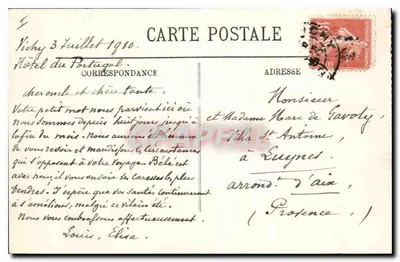 CARTE POSTALE
Vichy 3 Juillet 1910.
Hôtel du Portugal.
CORRESPONDANCE
ADRESSE
cher oncle et chère tante.
Votre petit mot nous parvient ici où
nous sommes depuis huit jours jusqu'à
la fin du mois. Nous aurions
le vous revoir et maudissons les circonstances
qui s'opposent à votre voyage. Bébé est
avec nous, il vous envoie ses caresses les plus
tendres. J'espère que vos santés continuent
à s'améliorer, malgré ce vilain été.
Nous vous embrassons affectueusement.
Louis, Elisa.
Monsieur
et Madame Marc de Gavoty
Villa St Antoine,
à Luynes
arrond. d'Aix
(Provence)